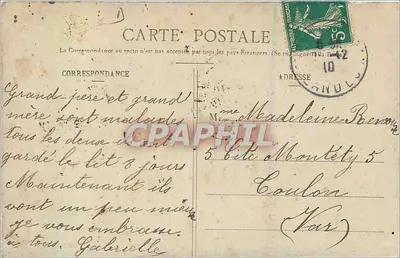 CARTE POSTALE
La Correspondance au recto n'est pas acceptée par tous les pays Etrangers. (Se
CORRESPONDANCE
ADRESSE
Grand-père et grand
mère sont malades
tous les deux ont
gardé le lit 3 jours
Maintenant ils
vont un peu mieux
je vous embrasse
à tous. Gabrielle
Madeleine
5 Cité Montéty 5
Toulon
(Var)
5
12
10
LANDES
CPAPHIL